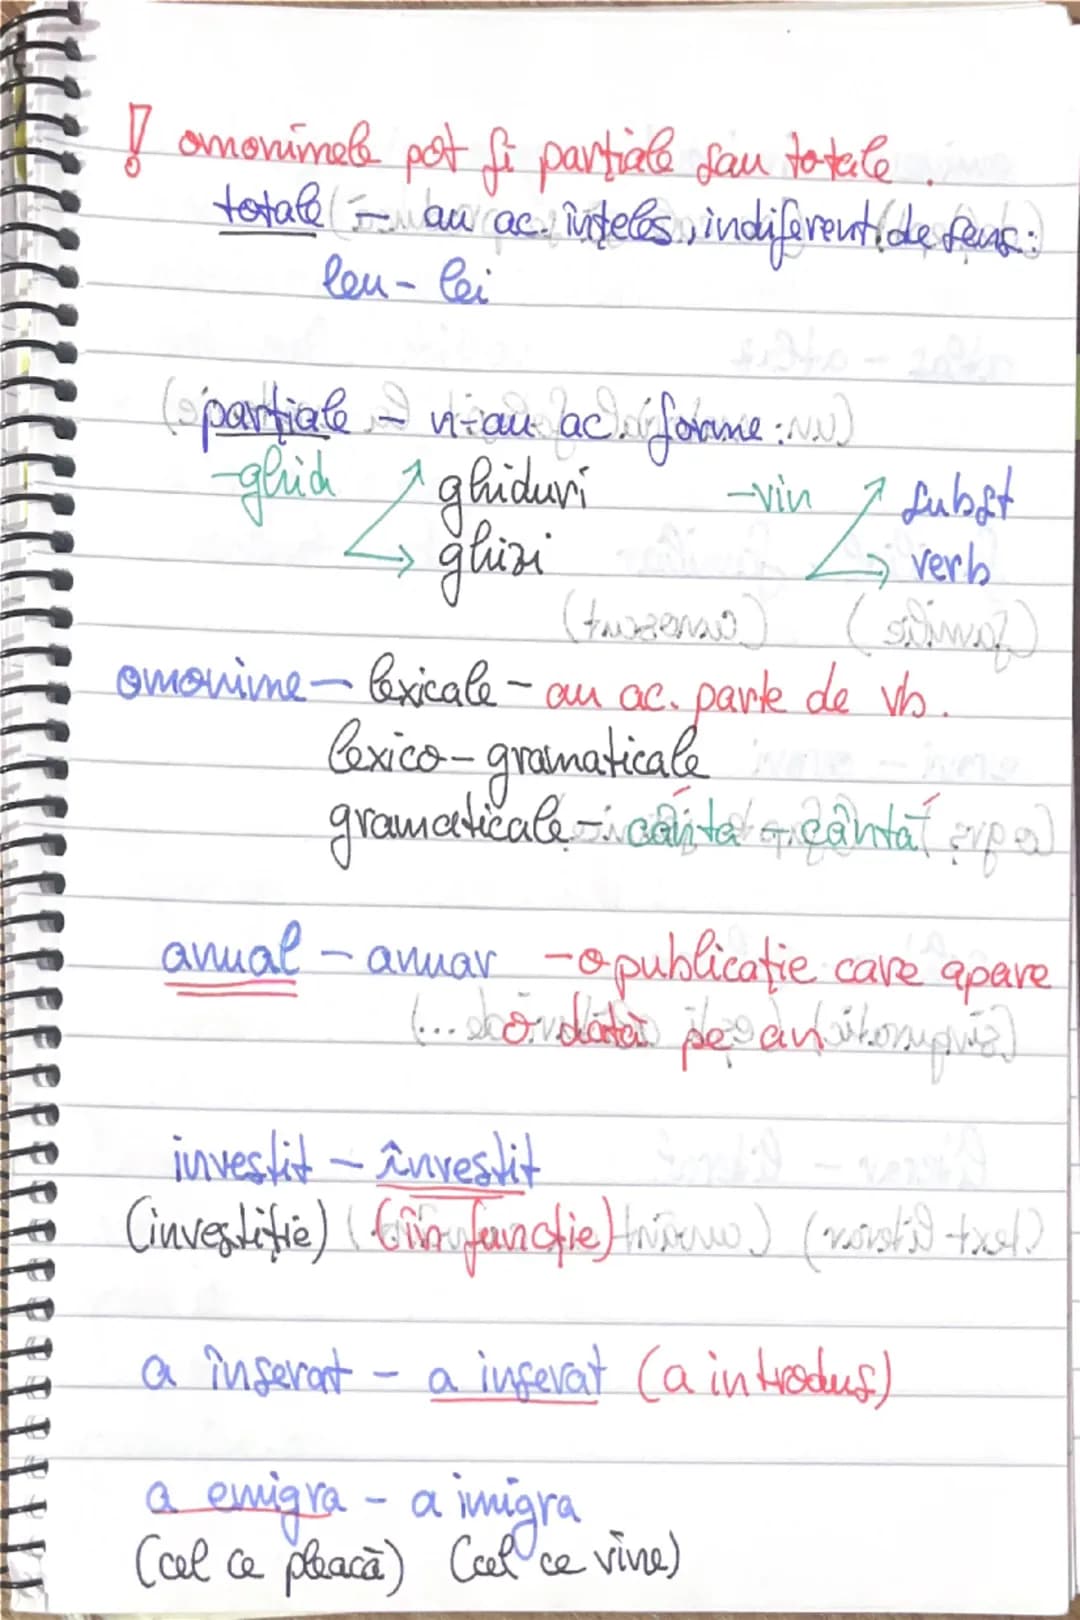 ! omonimele pot fi parțiale sau totale.
totale - au ac. înțeles, indiferent de sens:
leu - lei
parțiale - n-au ac. forme:
-ghid ghiduri -vin subst
ghizi verb
omonime - lexicale - au ac. parte de vb.
lexico-gramaticale
gramaticale - cântă - cântă
anual - anuar - o publicație care apare
o dată pe an
investit - învestit
(investiție) (în funcție)
a înserat - a inserat (a introdus)
a emigra - a imigra
(cel ce pleacă) (cel ce vine)